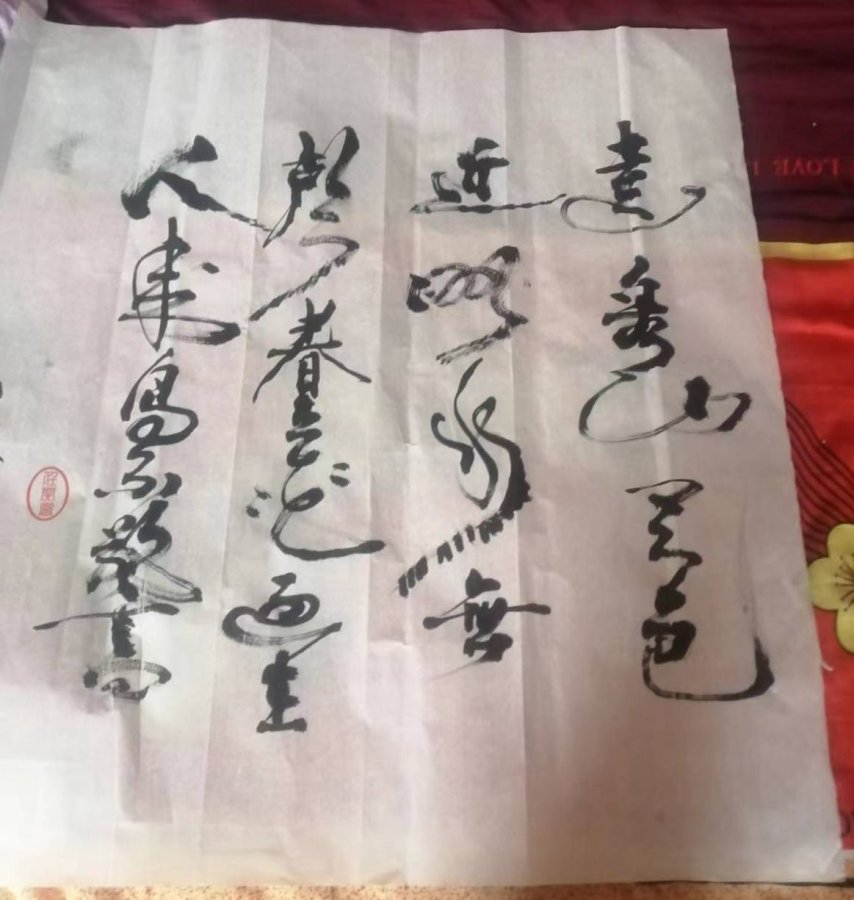 遠看山有色
近聽水無
聲春去花還在
人來鳥不驚
LOVE